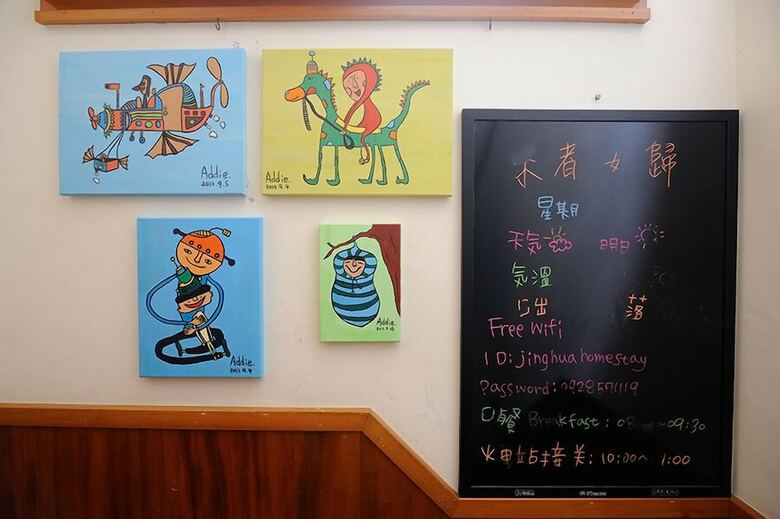 Addie.
2013.9.5
Addie.
2013.9.4
Addie.
2013.9.4
Addie.
者 女 歸
星期
天氣 明日
気溫
日出 落
Free Wifi
ID: jinghuahomestay
Password: 0928571119
早餐 Breakfast: 08 ~09:30
火車站接送: 10:00~ 1:00